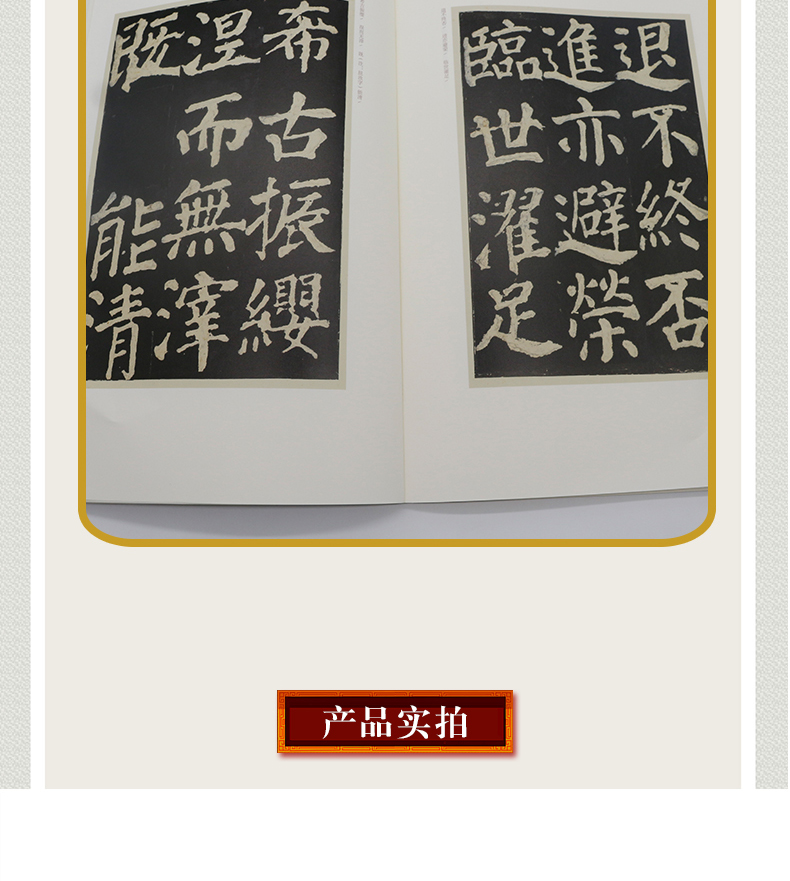 退不終否
進亦避榮
臨世濯足
希古振纓
涅而無滓
既能清
产品实拍